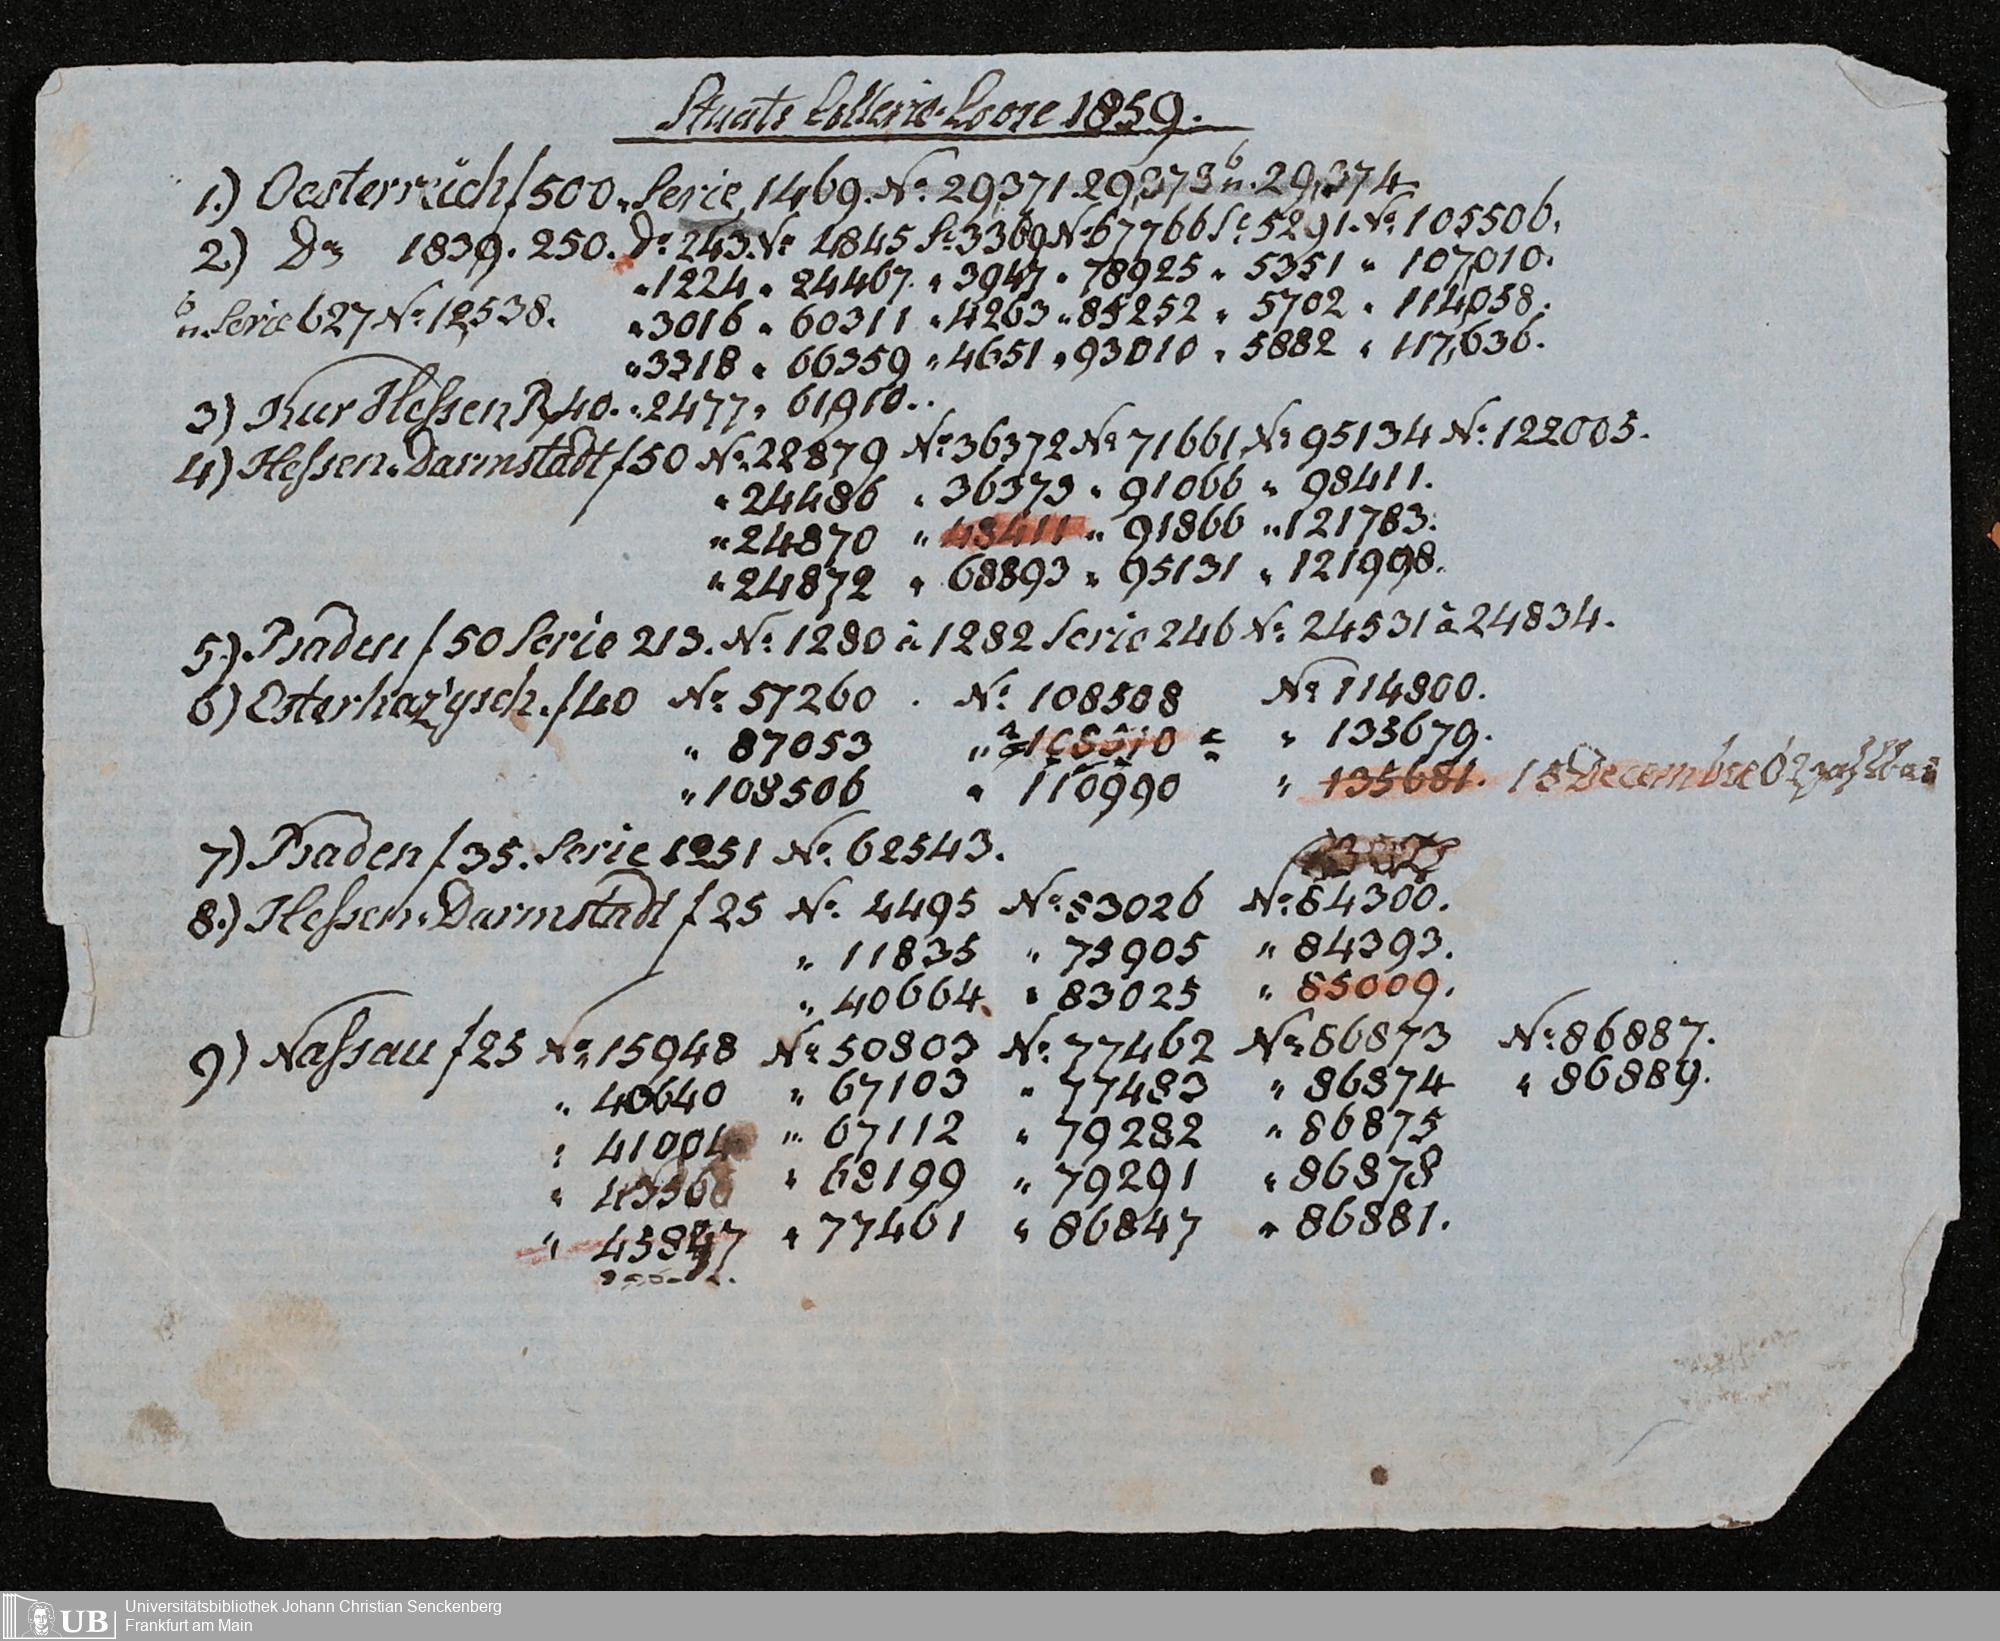 Staats Lotterie-Loose 1859.
1.) Oesterreich f 500. Serie 1469. No. 29,371. 29,373 u. 29,374
2) Do 1839. 250. Do. 243. No. 4845 Se. 3369 No. 67766 Se. 5291. No. 105506.
" 1224 " 24467. " 3947 " 78925 " 5351 " 107,010.
u. Serie 627 No. 12,538. " 3016 " 60311 " 4263 " 85252 " 5702 " 114,058.
" 3318 " 66359 " 4651 " 93010 " 5882 " 117,636.
3) Kur Hessen R 40. " 2477 " 61,910.
4) Hessen-Darmstadt f 50 No. 22879 No. 36372 No. 71661 No. 95134 No. 122005.
" 24486 " 36373 " 91066 " 98411.
" 24870 " 48411 " 91866 " 121783.
" 24872 " 68893 " 95131 " 121998.
5.) Baden f 50 Serie 213. No. 1280 à 1282 Serie 246 No. 24531 à 24834.
6) Esterhazysch. f 40 No. 57260 No. 108508 No. 114800.
" 87053 " 108510 " 133679.
" 108506 " 110990 " 135681. 15 December 62 zahlbar
7) Baden f 35. Serie 1251 No. 62543.
8.) Hessen-Darmstadt f 25 No. 4495 No. 53026 No. 84300.
" 11835 " 73905 " 84393.
" 40664 " 83025 " 85009.
9) Nassau f 25 No. 15948 No. 50803 No. 77462 No. 86873 No. 86887.
" 40640 " 67103 " 77483 " 86874 " 86889.
" 41004 " 67112 " 79282 " 86875
" 43366 " 68199 " 79291 " 86878
" 45847 " 77461 " 86847 " 86881.
UB Universitätsbibliothek Johann Christian Senckenberg
Frankfurt am Main